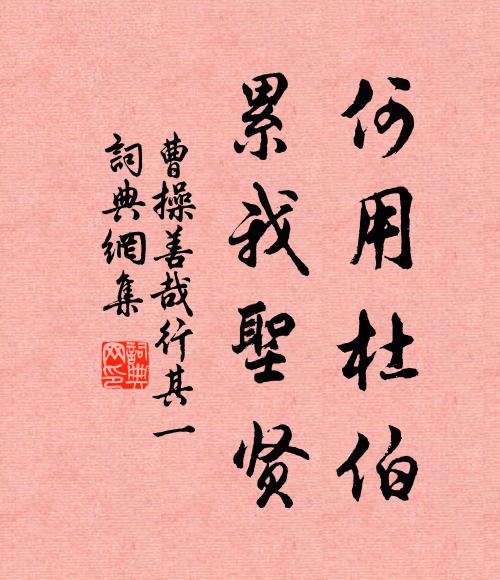 何用杜伯
累我聖贤
曹操善哉行其一
詞典網集
詞典
网印